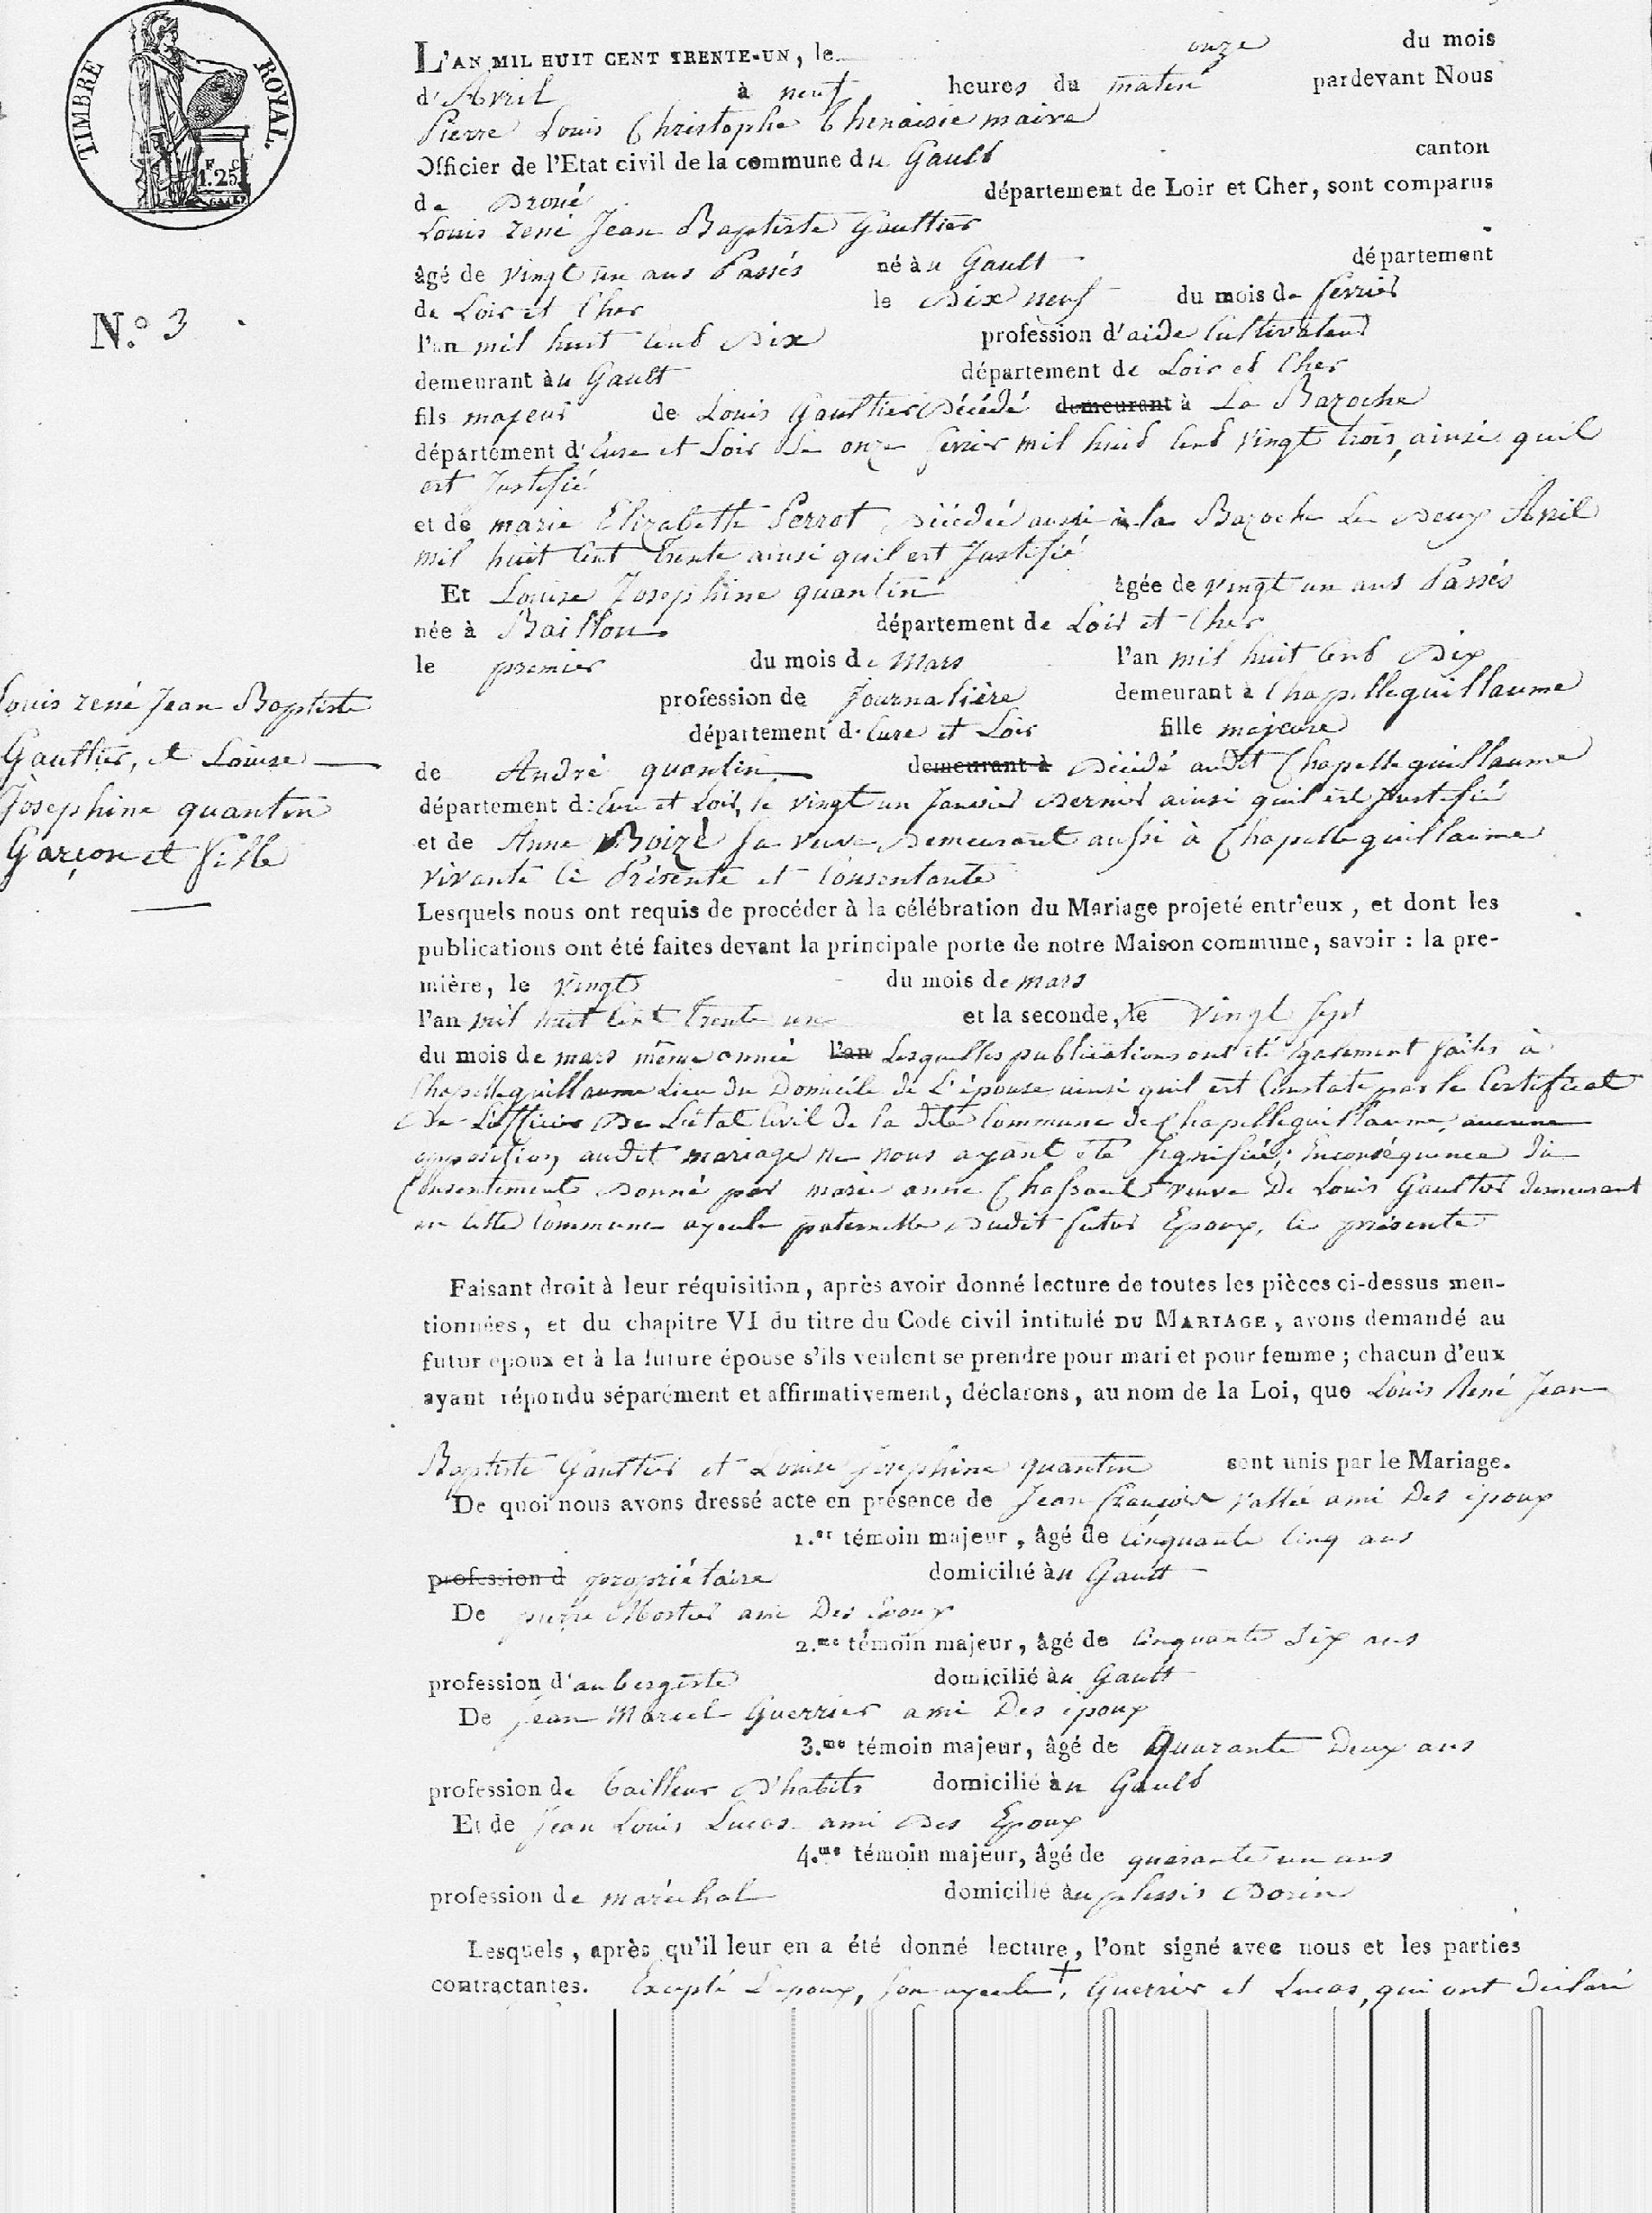 TIMBRE ROYAL.
F. C.
1.25
L'AN MIL HUIT CENT TRENTE-UN, le onze du mois
d'Avril à neuf heures du matin pardevant Nous
Pierre Louis Christophe Thenaisie maire
Officier de l'Etat civil de la commune du Gault canton
de Droué département de Loir et Cher, sont comparus
Louis rené Jean Baptiste Gaultier
âgé de vingt un ans Passés né au Gault département
de Loir et Cher le Dix neuf du mois de fevrier
l'an mil huit Cent Dix profession d'aide Cultivateur
demeurant au Gault département de Loir et Cher
fils majeur de Louis Gaultier Décédé demeurant à La Bazoche
département d'Eure et Loir Le onze fevrier mil huit Cent vingt trois, ainsi quil
est Justifié
et de marie Elizabeth Perrot Décédée aussi à la Bazoche Le Deux Avril
mil huit Cent Trente ainsi quil est Justifié
Et Louise Josephine quantin âgée de vingt un ans Passés
née à Baillou département de Loir et Cher
le premier du mois de Mars l'an mil huit Cent Dix
profession de Journalière demeurant à Chapelleguillaume
département d'Eure et Loir fille majeure
de André quantin demeurant à Décédé audit Chapelleguillaume
département d'Eure et Loir, le vingt un Janvier Dernier ainsi quil est Justifié
et de Anne Boizé Sa veuve Demeurant aussi à Chapelleguillaume
vivante Ci Présente et Consentante
N.º 3
Louis rené Jean Baptiste
Gaultier, et Louise
Josephine quantin
Garçon et fille
Lesquels nous ont requis de procéder à la célébration du Mariage projeté entr'eux, et dont les
publications ont été faites devant la principale porte de notre Maison commune, savoir : la pre-
mière, le vingt du mois de mars
l'an mil huit Cent Trente un et la seconde, le vingt sept
du mois de mars même année l'an Lesquelles publications ont été également faites à
Chapelleguillaume Lieu du Domicile de L'épouse ainsi quil est Constaté par le Certificat
De L'officier De L'état Civil de la dite Commune de Chapelleguillaume, aucune
opposition audit mariage ne nous ayant été Signifiée; Enconséquence du
Consentement Donné par marie anne veuve De Louis Gaultier demeurant
en cette Commune ayeule paternelle Dudit futur Epoux, Ci présente
Faisant droit à leur réquisition, après avoir donné lecture de toutes les pièces ci-dessus men-
tionnées, et du chapitre VI du titre du Code civil intitulé DU MARIAGE, avons demandé au
futur epoux et à la future épouse s'ils veulent se prendre pour mari et pour femme ; chacun d'eux
ayant répondu séparément et affirmativement, déclarons, au nom de la Loi, que Louis René Jean
Baptiste Gaultier et Louise Josephine quantin sont unis par le Mariage.
De quoi nous avons dressé acte en présence de Jean François vallée ami Des époux
1.er témoin majeur, âgé de Cinquante Cinq ans
profession d propriétaire domicilié au Gault
De pierre Mortier ami Des Epoux
2.me témoin majeur, âgé de Cinquante Six ans
profession d'aubergiste domicilié au Gault
De jean Marcel Guerrier ami Des époux
3.me témoin majeur, âgé de Quarante Deux ans
profession de tailleur D'habits domicilié au Gault
Et de Jean Louis Lucas ami Des Epoux
4.me témoin majeur, âgé de quarante un ans
profession de maréchal domicilié au plessis Dorin
Lesquels, après qu'il leur en a été donné lecture, l'ont signé avec nous et les parties
contractantes. Excepté L'epoux, Son ayeule, Guerrier et Lucas, qui ont déclaré